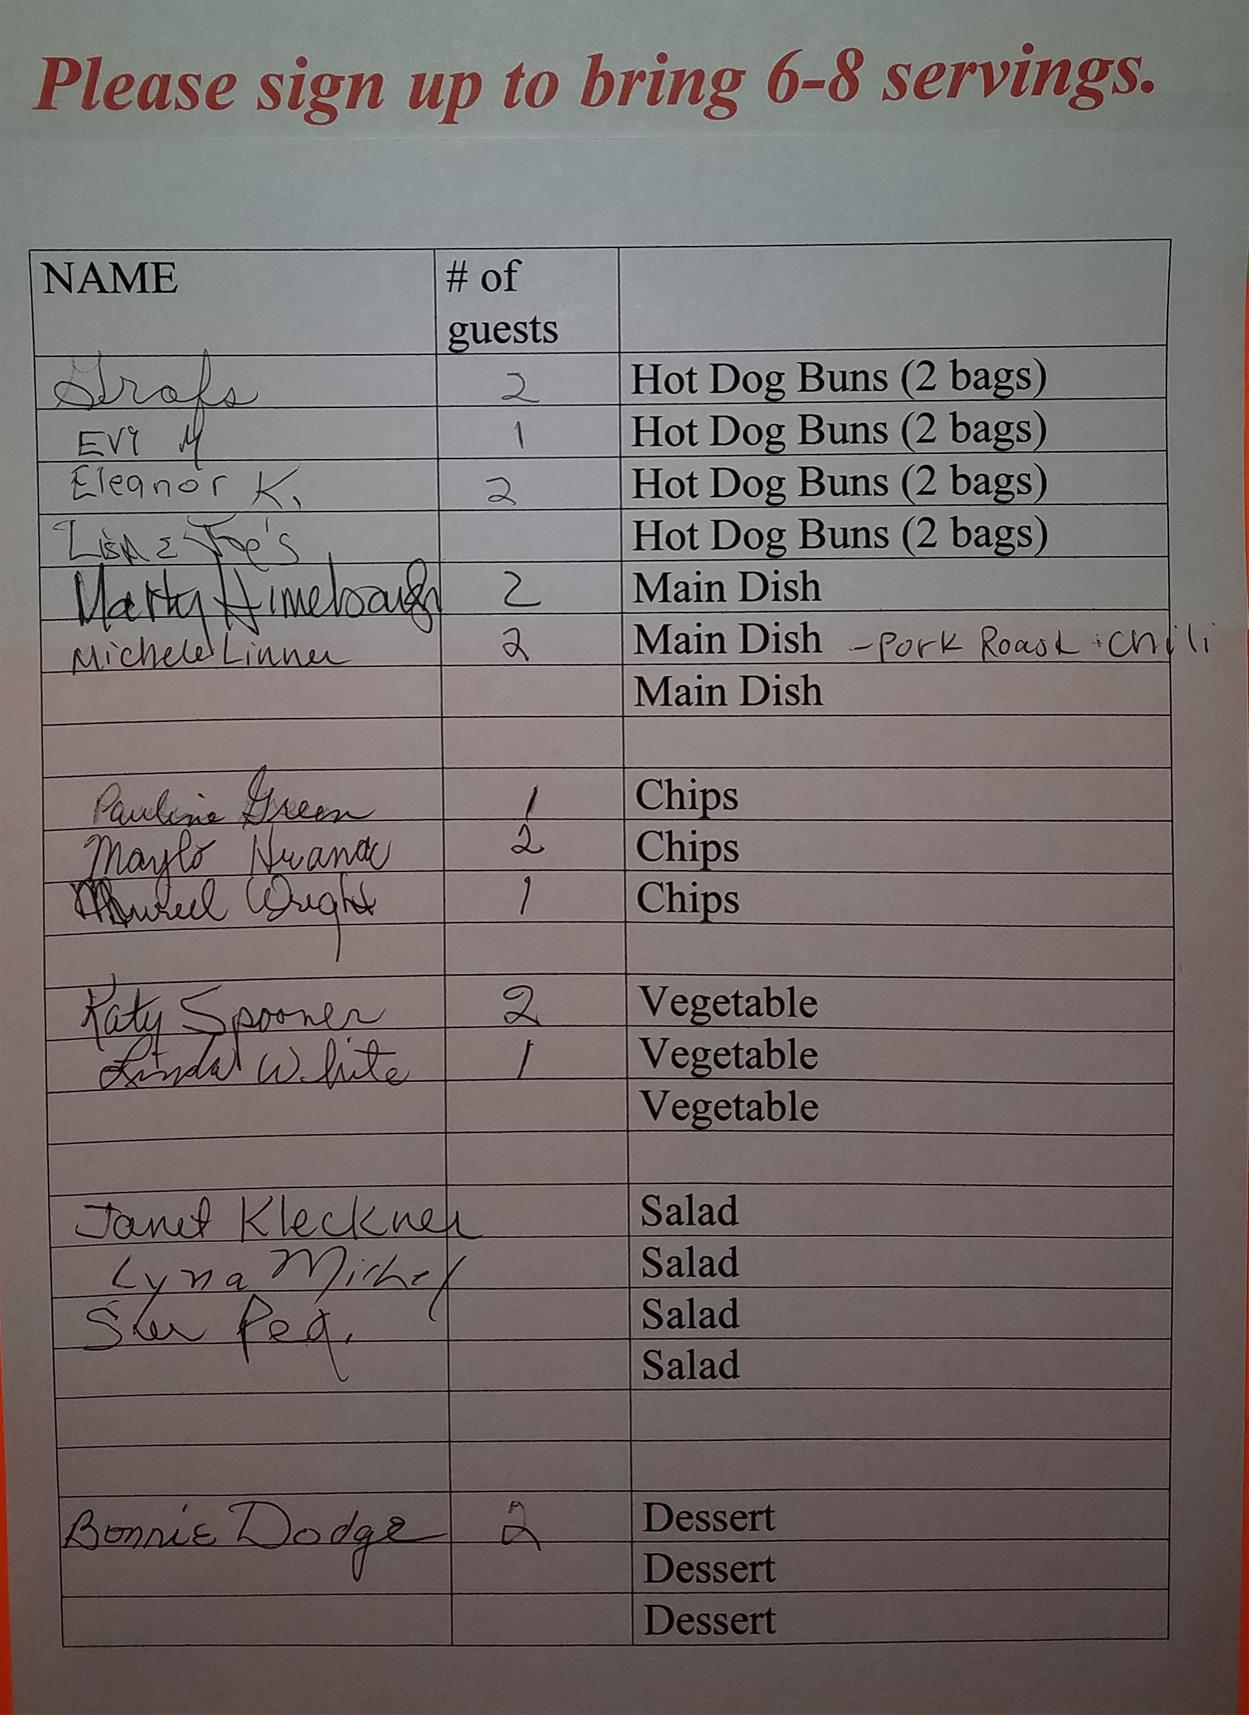 Please sign up to bring 6-8 servings.
NAME # of guests
Grafs 2 Hot Dog Buns (2 bags)
EVI M 1 Hot Dog Buns (2 bags)
Eleanor K. 2 Hot Dog Buns (2 bags)
Joe's Hot Dog Buns (2 bags)
Marty Himebaugh 2 Main Dish
Michele Linner 2 Main Dish -Pork Roast + Chili
Main Dish
Pauline Green 1 Chips
2 Chips
Wright 1 Chips
Katy Spooner 2 Vegetable
Linda White 1 Vegetable
Vegetable
Janet Kleckner Salad
Lyna Michel Salad
Salad
Salad
Bonnie Dodge 2 Dessert
Dessert
Dessert